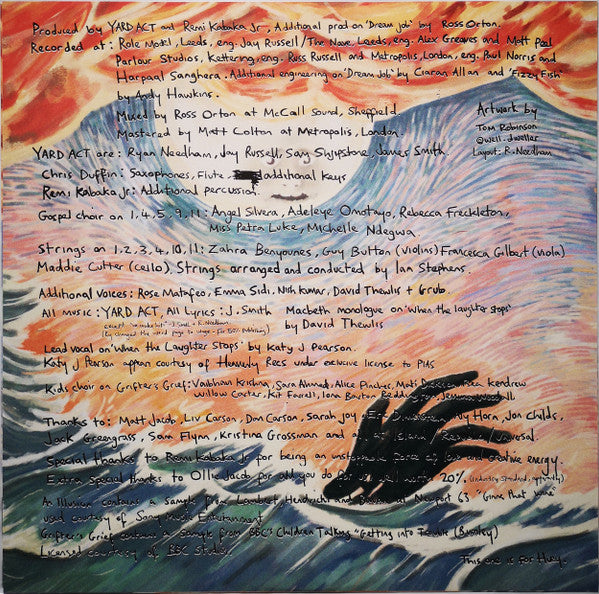 Produced by YARD ACT and Remi Kabaka Jr, Additional prod on 'Dream Job' by Ross Orton.
Recorded at: Role Model, Leeds, eng. Jay Russell / The Nave, Leeds, eng. Alex Greaves and Matt Peel
Parlour Studios, Kettering, eng. Russ Russell and Metropolis, London, eng. Paul Norris and
Harpaal Sanghera. Additional engineering on 'Dream Job' by Ciaran Allan and 'Fizzy Fish'
by Andy Hawkins.
Mixed by Ross Orton at McCall Sound, Sheffield.
Mastered by Matt Colton at Metropolis, London.
Artwork by
Tom Robinson
@well.dweller
Layout: R. Needham
YARD ACT are: Ryan Needham, Jay Russell, Sam Shjipstone, James Smith.
Chris Duffin: Saxophones, Flute additional Keys
Remi Kabaka Jr: Additional percussion.
Gospel choir on 1,4,5,9,11: Angel Silvera, Adeleye Omotayo, Rebecca Freckleton,
Miss Petra Luke, Michelle Ndegwa.
Strings on 1,2,3,4,10,11: Zahra Benyounes, Guy Button (violins) Francesca Gilbert (viola)
Maddie Cutter (cello), Strings arranged and conducted by Ian Stephens.
Additional Voices: Rose Matafeo, Emma Sidi, Nish Kumar, David Thewlis + Grub.
All music: YARD ACT, All Lyrics: J. Smith
Macbeth monologue on 'when the laughter stops'
by David Thewlis
Lead vocal on 'when the Laughter Stops' by Katy J Pearson.
Katy J Pearson appears courtesy of Heavenly Recs under exclusive license to PIAS
Kids choir on Grifter's Grief: Vaibhav Krishna, Sara Ahmed, Alice Pincher, Mati Kendrew
Willow Carter, Kit Farrell, Iona Barton Reddington, Jemima
Thanks to: Matt Jacob, Liv Carson, Dan Carson, Sarah Joy, Ivy Horn, Jon Childs,
Jack Greengrass, Sam Flynn, Kristina Grossman and all at Island / Universal.
Special thanks to Remi Kabaka Jr for being an unstoppable force of love and creative energy.
Extra Special thanks to Ollie Jacob for all you do for us. well worth 20% (industry standard, apparently)
An Illusion contains a sample from Lambert, Hendricks and Bavan at Newport 63 "Gimme That Wine"
used courtesy of Sony Music Entertainment
Grifter's Grief contains a sample from BBC's Children Talking "Getting into Trouble (Burnley)
Licensed courtesy of BBC Studios.
This one is for Huey.